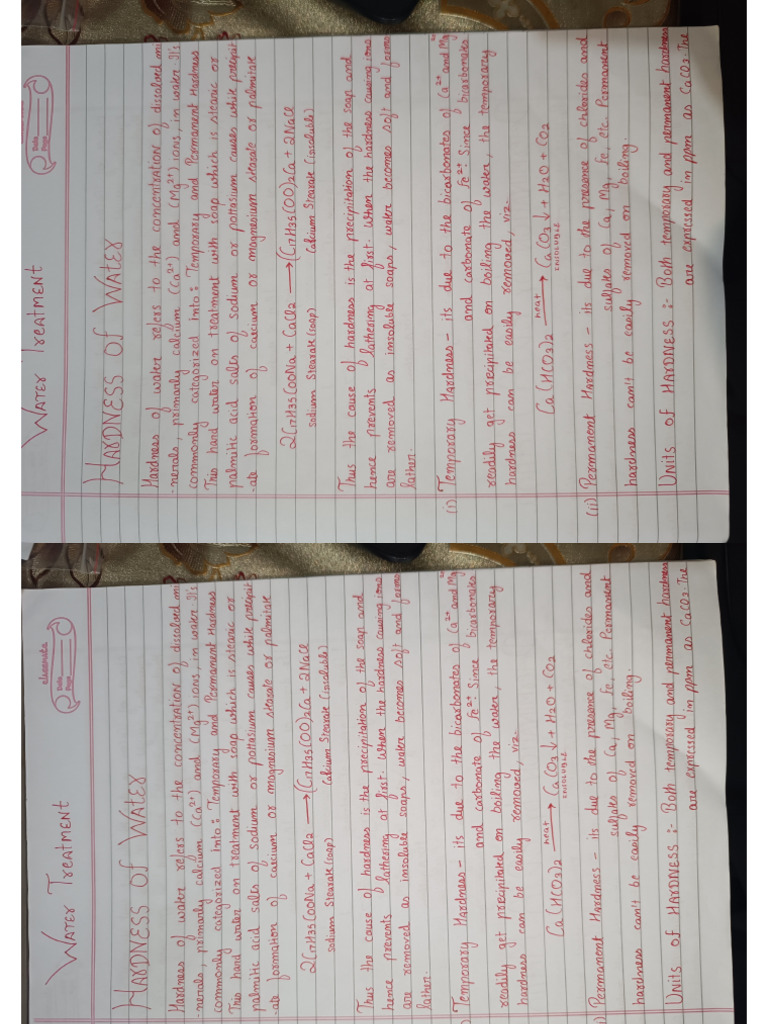 WATER TREATMENT
HARDNESS OF WATER
Hardness of water refers to the concentration of dissolved mi
-nerals, primarily calcium (Ca2+) and (Mg2+) ions, in water. It's
commonly categorized into: Temporary and Permanent Hardness
This hard water on treatment with soap which is stearic or
palmitic acid salts of sodium or pottasium causes white precipit
-ate formation of calcium or magnesium stearate or palmitate
2C17H35COONa + CaCl2 → (C17H35COO)2Ca + 2NaCl
sodium Stearate (soap) Calcium Stearate (insoluble)
Thus the cause of hardness is the precipitation of the soap and
hence prevents lathering at first. When the hardness causing ions
are removed as insoluble soaps, water becomes soft and forms
lather.
(i) Temporary Hardness - its due to the bicarbonates of Ca2+ and Mg2+
and carbonate of Fe2+. Since bicarbonates
readily get precipitated on boiling the water, the temporary
hardness can be easily removed, viz.
Ca(HCO3)2 heat → CaCO3↓ + H2O + CO2
INSOLUBLE
(ii) Permanent Hardness - its due to the presence of chlorides and
sulfates of Ca, Mg, Fe, etc. Permanent
hardness can't be easily removed on boiling.
UNITS OF HARDNESS :- Both temporary and permanent hardness
are expressed in ppm as CaCO3. The
Date
Page
WATER TREATMENT
classmate
Date
Page
HARDNESS OF WATER
Hardness of water refers to the concentration of dissolved mi
-nerals, primarily calcium (Ca2+) and (Mg2+) ions, in water. It's
commonly categorized into: Temporary and Permanent Hardness
This hard water on treatment with soap which is stearic or
palmitic acid salts of sodium or pottasium causes white precipit
-ate formation of calcium or magnesium stearate or palmitate
2C17H35COONa + CaCl2 → (C17H35COO)2Ca + 2NaCl
sodium Stearate (soap) Calcium Stearate (insoluble)
Thus the cause of hardness is the precipitation of the soap and
hence prevents lathering at first. When the hardness causing ions
are removed as insoluble soaps, water becomes soft and forms
lather.
) Temporary Hardness - its due to the bicarbonates of Ca2+ and Mg
and carbonate of Fe2+. Since bicarbonates
readily get precipitated on boiling the water, the temporary
hardness can be easily removed, viz.
Ca(HCO3)2 heat → CaCO3↓ + H2O + CO2
INSOLUBLE
i) Permanent Hardness - its due to the presence of chlorides and
sulfates of Ca, Mg, Fe, etc. Permanent
hardness can't be easily removed on boiling.
UNITS OF HARDNESS :- Both temporary and permanent hardness
are expressed in ppm as CaCO3. The